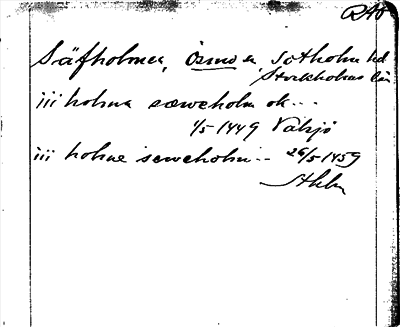 RAÖ
Säfholmen, Ösmo sn, Sotholm hd
Stockholms län
iii holma sæweholm ok...
1/5 1449 Växjö
iii holme seweholm.. 29/5 1459
Sthlm